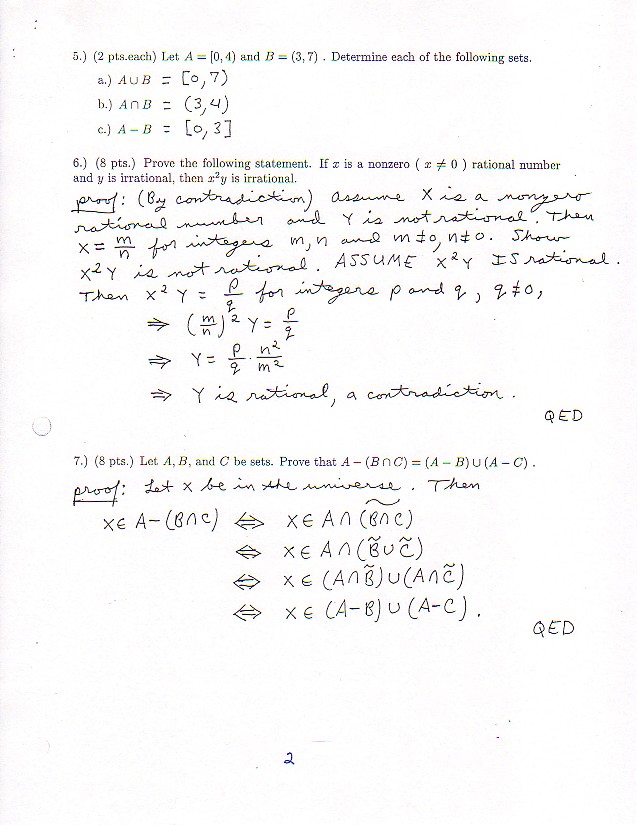 5.) (2 pts.each) Let A = [0, 4) and B = (3, 7) . Determine each of the following sets.
a.) A ∪ B = [0, 7)
b.) A ∩ B = (3, 4)
c.) A − B = [0, 3]
6.) (8 pts.) Prove the following statement. If x is a nonzero ( x ≠ 0 ) rational number
and y is irrational, then x²y is irrational.
proof: (By contradiction) Assume X is a nonzero
rational number and Y is not rational. Then
X = m/n for integers m, n and m≠0, n≠0. Show
X²Y is not rational. ASSUME X²Y IS rational.
Then X²Y = p/q for integers p and q, q≠0,
⇒ (m/n)² Y = p/q
⇒ Y = p/q · n²/m²
⇒ Y is rational, a contradiction.
QED
7.) (8 pts.) Let A, B, and C be sets. Prove that A − (B ∩ C) = (A − B) ∪ (A − C) .
proof: Let x be in the universe. Then
X ∈ A−(B∩C) ⇔ X ∈ A ∩ (B∩C)~
⇔ X ∈ A ∩ (B̃ ∪ C̃)
⇔ X ∈ (A∩B̃) ∪ (A∩C̃)
⇔ X ∈ (A−B) ∪ (A−C).
QED
2